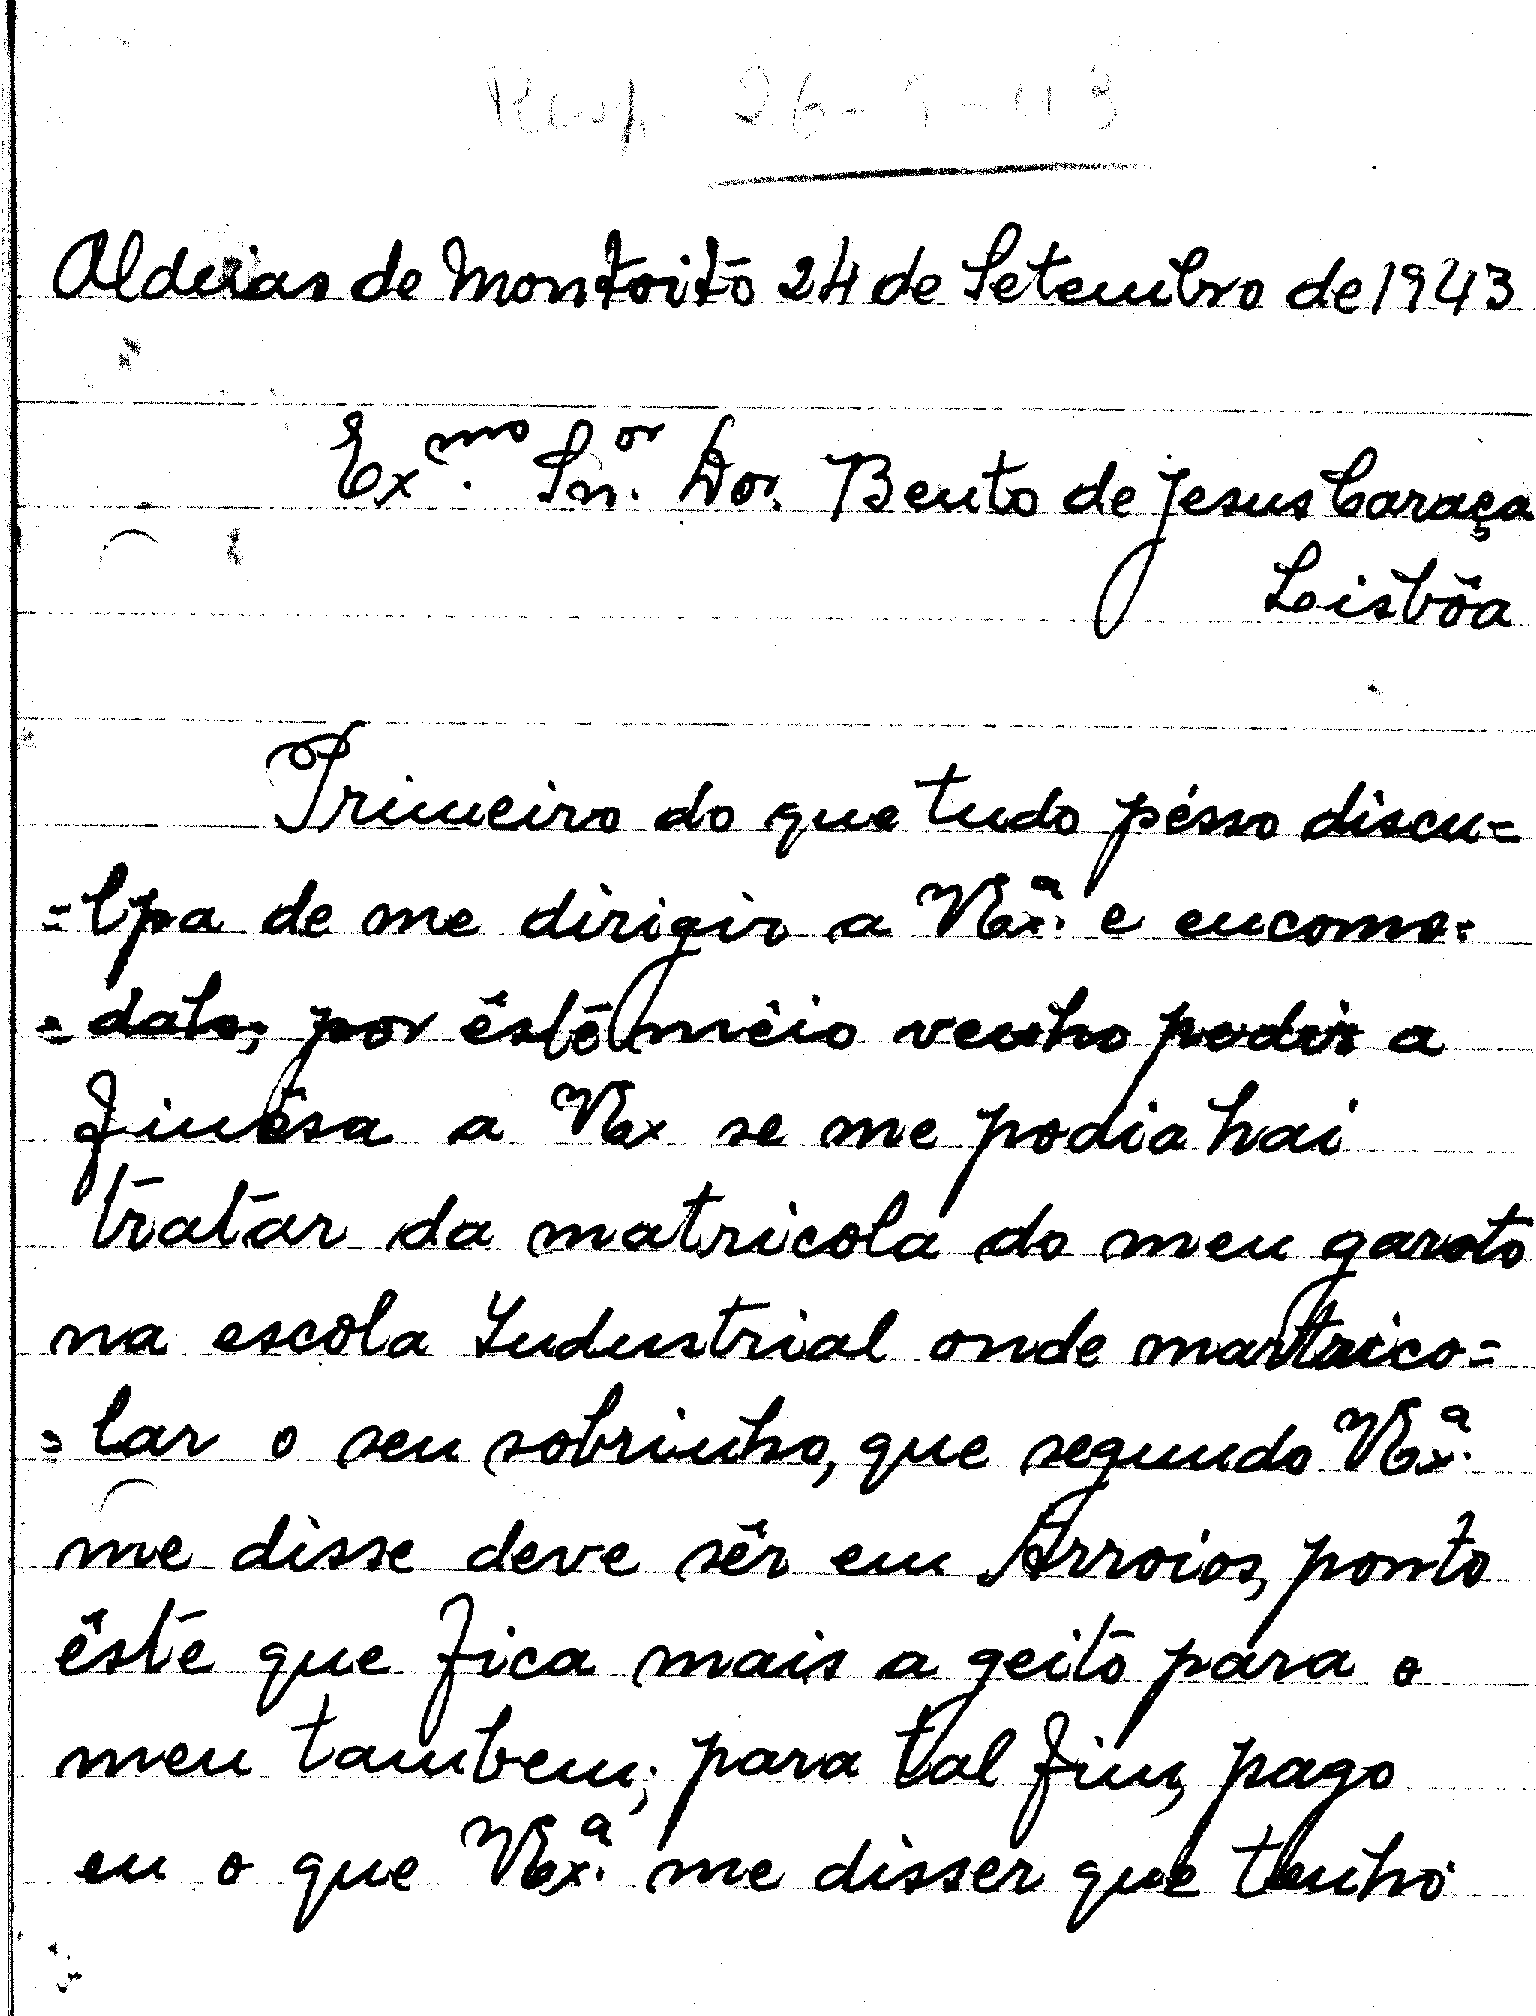 Resp. 26-9-43
Aldeias de Montoito 24 de Setembro de 1943
Exmo. Snr. Dor. Bento de Jesus Caraça
Lisbôa
Primeiro do que tudo pésso discu=
=lpa de me dirigir a V.Exª. e encomo=
=dalo; por êste mêio venho pedir a
finêsa a V.Ex se me podia hai
tratar da matricola do meu garoto
na escola Industrial onde martrico=
=lar o seu sobrinho, que segundo V.Exª.
me disse deve sêr em Arroios, ponto
êste que fica mais a geito para o
meu tambem; para tal fim, pago
eu o que V.Exª. me disser que tenho